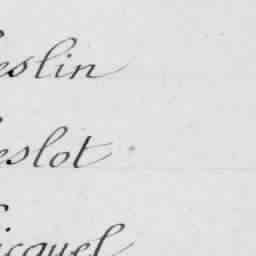 eslin
eslot
icquel